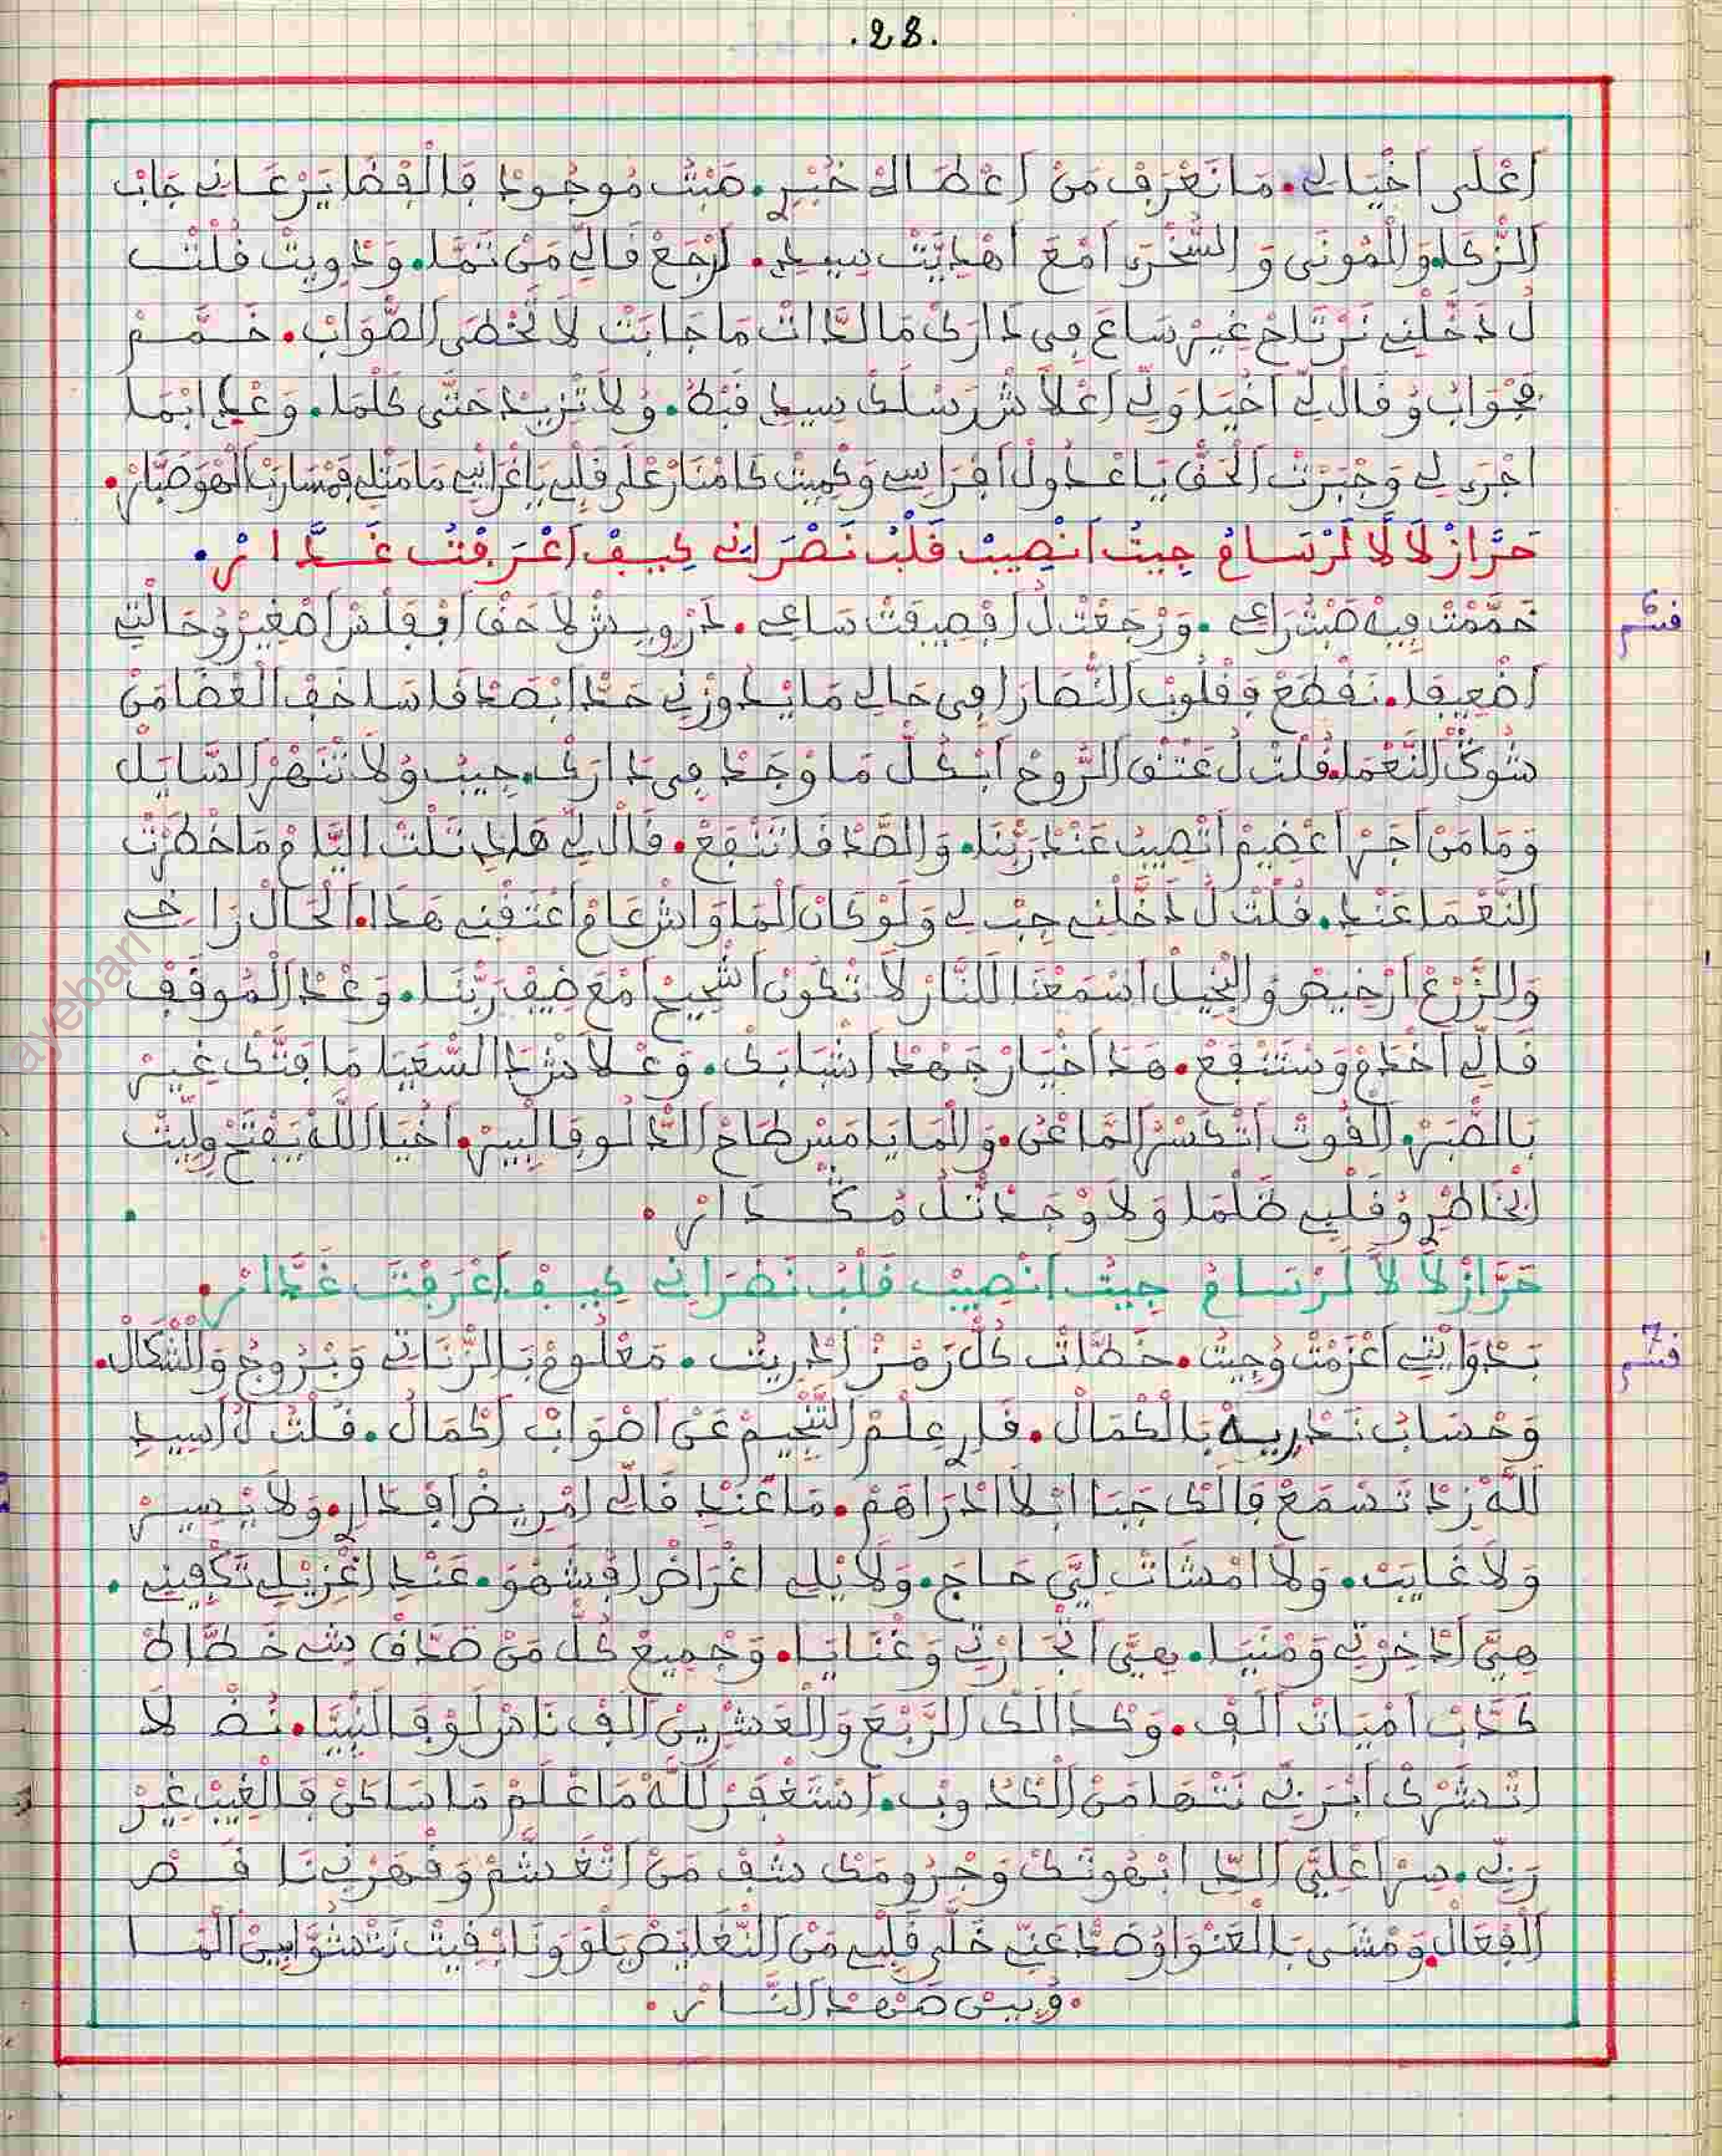 .28.
اَعْلَى اَخْيَالِي. مَا نَعْرَفْ مَنْ اَعْطَالهْ خْبَرِ. صَبْتُ مُوجُودْ فَالْفْضَا يَرْعَانِي جَابْ
الزَّكَا. وَالْمُونَى وَالسُّخْرَى اَمْعَ اَهْدِيَّتْ سِيدِ. اَرْجَعْ قَالِّي مَنْ تَمَّا. وَدْوِيتْ قُلْتْ
لُ دَخَّلْنِي نَرْتَاحْ غِيرْ سَاعَ فِي دَارَكْ مَا لَدَّاتْ مَا جَابَتْ لَا تَخْطَى الصْوَابْ. خَمَّمْ
فَجْوَابُ وُقَالْ لِي اَخْيَا وَلِي اَعْلَاشْ رَسْلَكْ سِيدِ قَبْلَهْ. وُلَا تْزِيدْ حَتَّى كَلْمَا. وَغْدَا بْمَا
اجْرَى لِي وَجْبَرْتْ الْحَقْ يَا عْدُولْ اَفْرَاسِي وَكْمِيتْ كَامْنَارْ عْلَى قَلْبِي يَا غْرَايْبِي مَا مَتْلِي فَمْسَارَبْ الْهْوَ صَبَّارْ.
حَرَّازْ لَالَّا لَرْسَامُ جِيتُ اَنْصِيبْ قَلْبُ نَصْرَانِي كِيفْ اَعْرَفْتُ غَدَّارْ.
قسم 6
خَمَّمْتْ فِيهْ صَبْتْ رَاعِي. وَرْجَعْتْ لُ اَفْصِيفَتْ سَاعِي. دَرْوِيشْ لَاحَقْ اَفْقَلْشْ اَصْغِيرْ وُحَالْتِي
اَضْعِيفَا. نَقْطَعْ فَقْلُوبْ النّْصَارَا فِي حَالِي مَا يْدُوزْنِي حَدْ اَبْصَدْقَا سَاخَفْ الْغْضَا مَنْ
شُوكْ النَّعْمَا. قُلْتْ لُ عَتْقْ الرُّوحْ اَبْكُلّْ مَا وْجَدْ فِي دَارَكْ. جِيبْ وُلَا تَنْهَرْ السَّايَلْ
وَمَا مَنْ اَجَرْ اَعْضِيمْ اَتْصِيبُ عَنْدْ رَبْنَا. وَالصَّدْقَا تَنْفَعْ. قَالْ لِي هَادِ تَلْتْ اليَّامْ مَا خْطْرَتْ
النَّعْمَا عَنْدِ. قُلْتْ لُ دَخَّلْنِي جِبْ لِي وَلَوْ كَانْ الْمَا وَاشْ عَامْ اَعْتَقْنِي هَدَا. الْحَالْ رَاخِي
وَالزَّرْعْ اَرْخِيصْ وَالْبْخِيلْ اَسْمَعْنَا لَلنَّارْ لَا تْكُونْ اَشْحِيحْ اَمْعَ ضِيفْ رَبْنَا. وَغْدَ الْمُوقَفْ
قَالِّي اَخْدَمْ وَسْتَنْفَعْ. هَدَا خْيَارْ جَهْدْ اَشْبَابَكْ. وَعْلَاشْ دَا السَّعْيَا مَا فَتَّكْ غِيرْ
بَالصَّبَرْ. الْقُوتْ اَتْكَسَّرْ الْمَاعْنْ. وَالْمَا يَامَسْ طَاحْ الدَّلْوْ فَالْبِيرْ. اَخْيَا اَللَّهْ يَفْتَحْ وَلِيتْ
الْخَاطْرِ وُقَلْبِي ظَلْمَا وَلَا وْجَدْتْ لُ مْكْدَارْ.
حَرَّازْ لَالَّا لَرْسَامُ جِيتُ اَنْصِيبْ قَلْبُ نَصْرَانِي كِيفْ اَعْرَفْتَ غَدَّارْ.
قسم 7
بَدْوَايْتِي اَعْزَمْتْ وُجِيتْ. خَطَّاتْ كُلْ رَمْزْ اَدْرِيتْ. مَعْلُومْ بَالزَّنَاتِي وَبْرُوجْ وَالشْكَالْ.
وَحْسَابْ نَدْرِيهْ بَالْكْمَالْ. قَارِ عِلْمْ التَّنْجِيمْ عَنْ اَصْوَابُ اَكْمَالُ. قُلْتْ لُ اَسِيدِ
لَلَّهْ زِدْ تَسْمَعْ فَالَكْ جَبَا ابْلَا اَدْرَاهَمْ. مَا عَنْدِ قَالِّي اَمْرِيضْ اَفْدَارِ. وَلَا يْسِيرْ
وَلَا غَايَبْ. وَلَا اَمْشَاتْ لِيَّ حَاجَ. وَلَا يْلِي اَغْرَاضْ اَفْشَهْوَ. عَنْدِ اَغْزِيْلِ تَكْفِينِي.
هِيَّ اَدْخِرْتِي وَمْنَيَا. هِيَّ اتْجَارْتِي وَغْنَايَا. وَجْمِيعْ كُلّْ مَنْ صَدَّقْ شِي خَطَّاطْ
كَدَّبْ اَمْيَاتْ اَلَفْ. وَكْدَالَكْ الرَّبْعَ وَالْعَشْرِينْ اَلَفْ نَادْرْ لَوْ فَالنْبِيَا. نُضْ لَا
اتْشَرْكْ اَبْرَبِّي نَتْهَا مَنْ الْكْدُوبْ. اَسْتَغْفَرْ لَلَّهْ مَا عْلَمْ مَا سَاكَنْ فَالْغِيبْ غِيرْ
رَبِّي. سِرْ اَعْلِيَّ اللِّي ابْهُوتَكْ وَجْرُومَكْ شُفْ مَنْ اَتْغَشَّمْ وَقْهَرْنِي نَاقَصْ
الْفْعَالْ. وَمْشَى بَالْعَنْوَا وُصَدّْ عَنِّي خَلَّى قَلْبِي مَنْ النّْغَايَصْ يَلَوْ وَنَا بْقِيتْ نَتْشْوَّا بِينْ الْمَا
. وُبِينْ صَهْدْ النَّارْ .